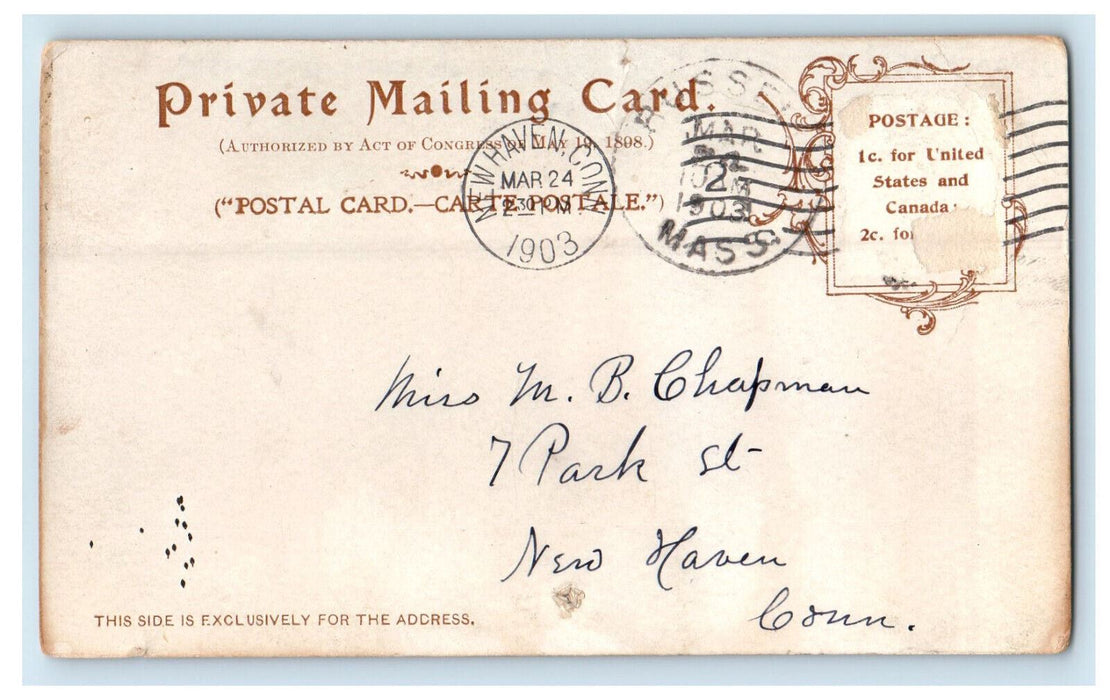 Private Mailing Card.
(Authorized by Act of Congress of May 19, 1898.)
("POSTAL CARD.—CARTE POSTALE.")
NEW HAVEN, CONN.
MAR 24
2-30 PM
1903
RUSSELL
MAR
2
1903
MASS.
POSTAGE:
1c. for United
States and
Canada;
2c. fo
Miss M. B. Chapman
7 Park St
New Haven
Conn.
THIS SIDE IS EXCLUSIVELY FOR THE ADDRESS.